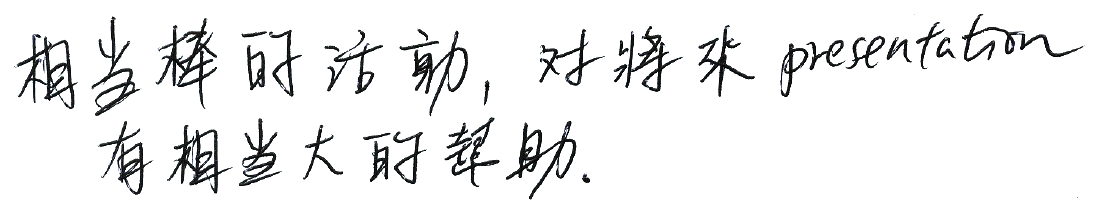 相当棒的活動, 对将来 presentation
有相当大的幫助.